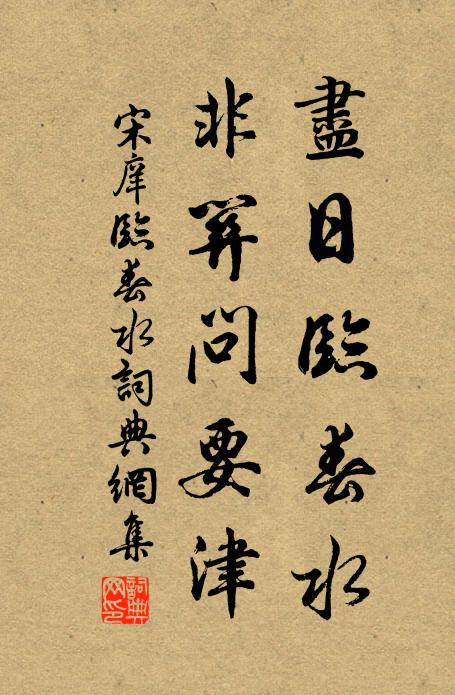 盡日臨春水
非關問要津
宋庠臨春水詞典網集
詞典網印